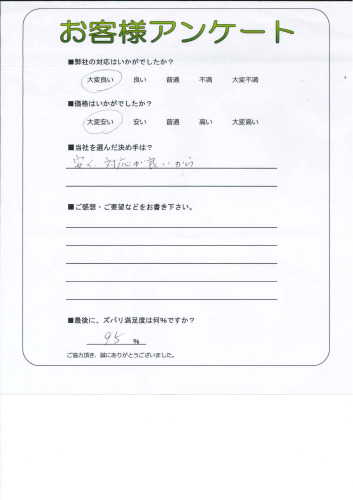 お客様アンケート
■弊社の対応はいかがでしたか？
大変良い 良い 普通 不満 大変不満
■価格はいかがでしたか？
大変安い 安い 普通 高い 大変高い
■当社を選んだ決め手は？
安く、対応が良いから
■ご感想・ご要望などをお書き下さい。
■最後に、ズバリ満足度は何%ですか？
95 %
ご協力頂き、誠にありがとうございました。